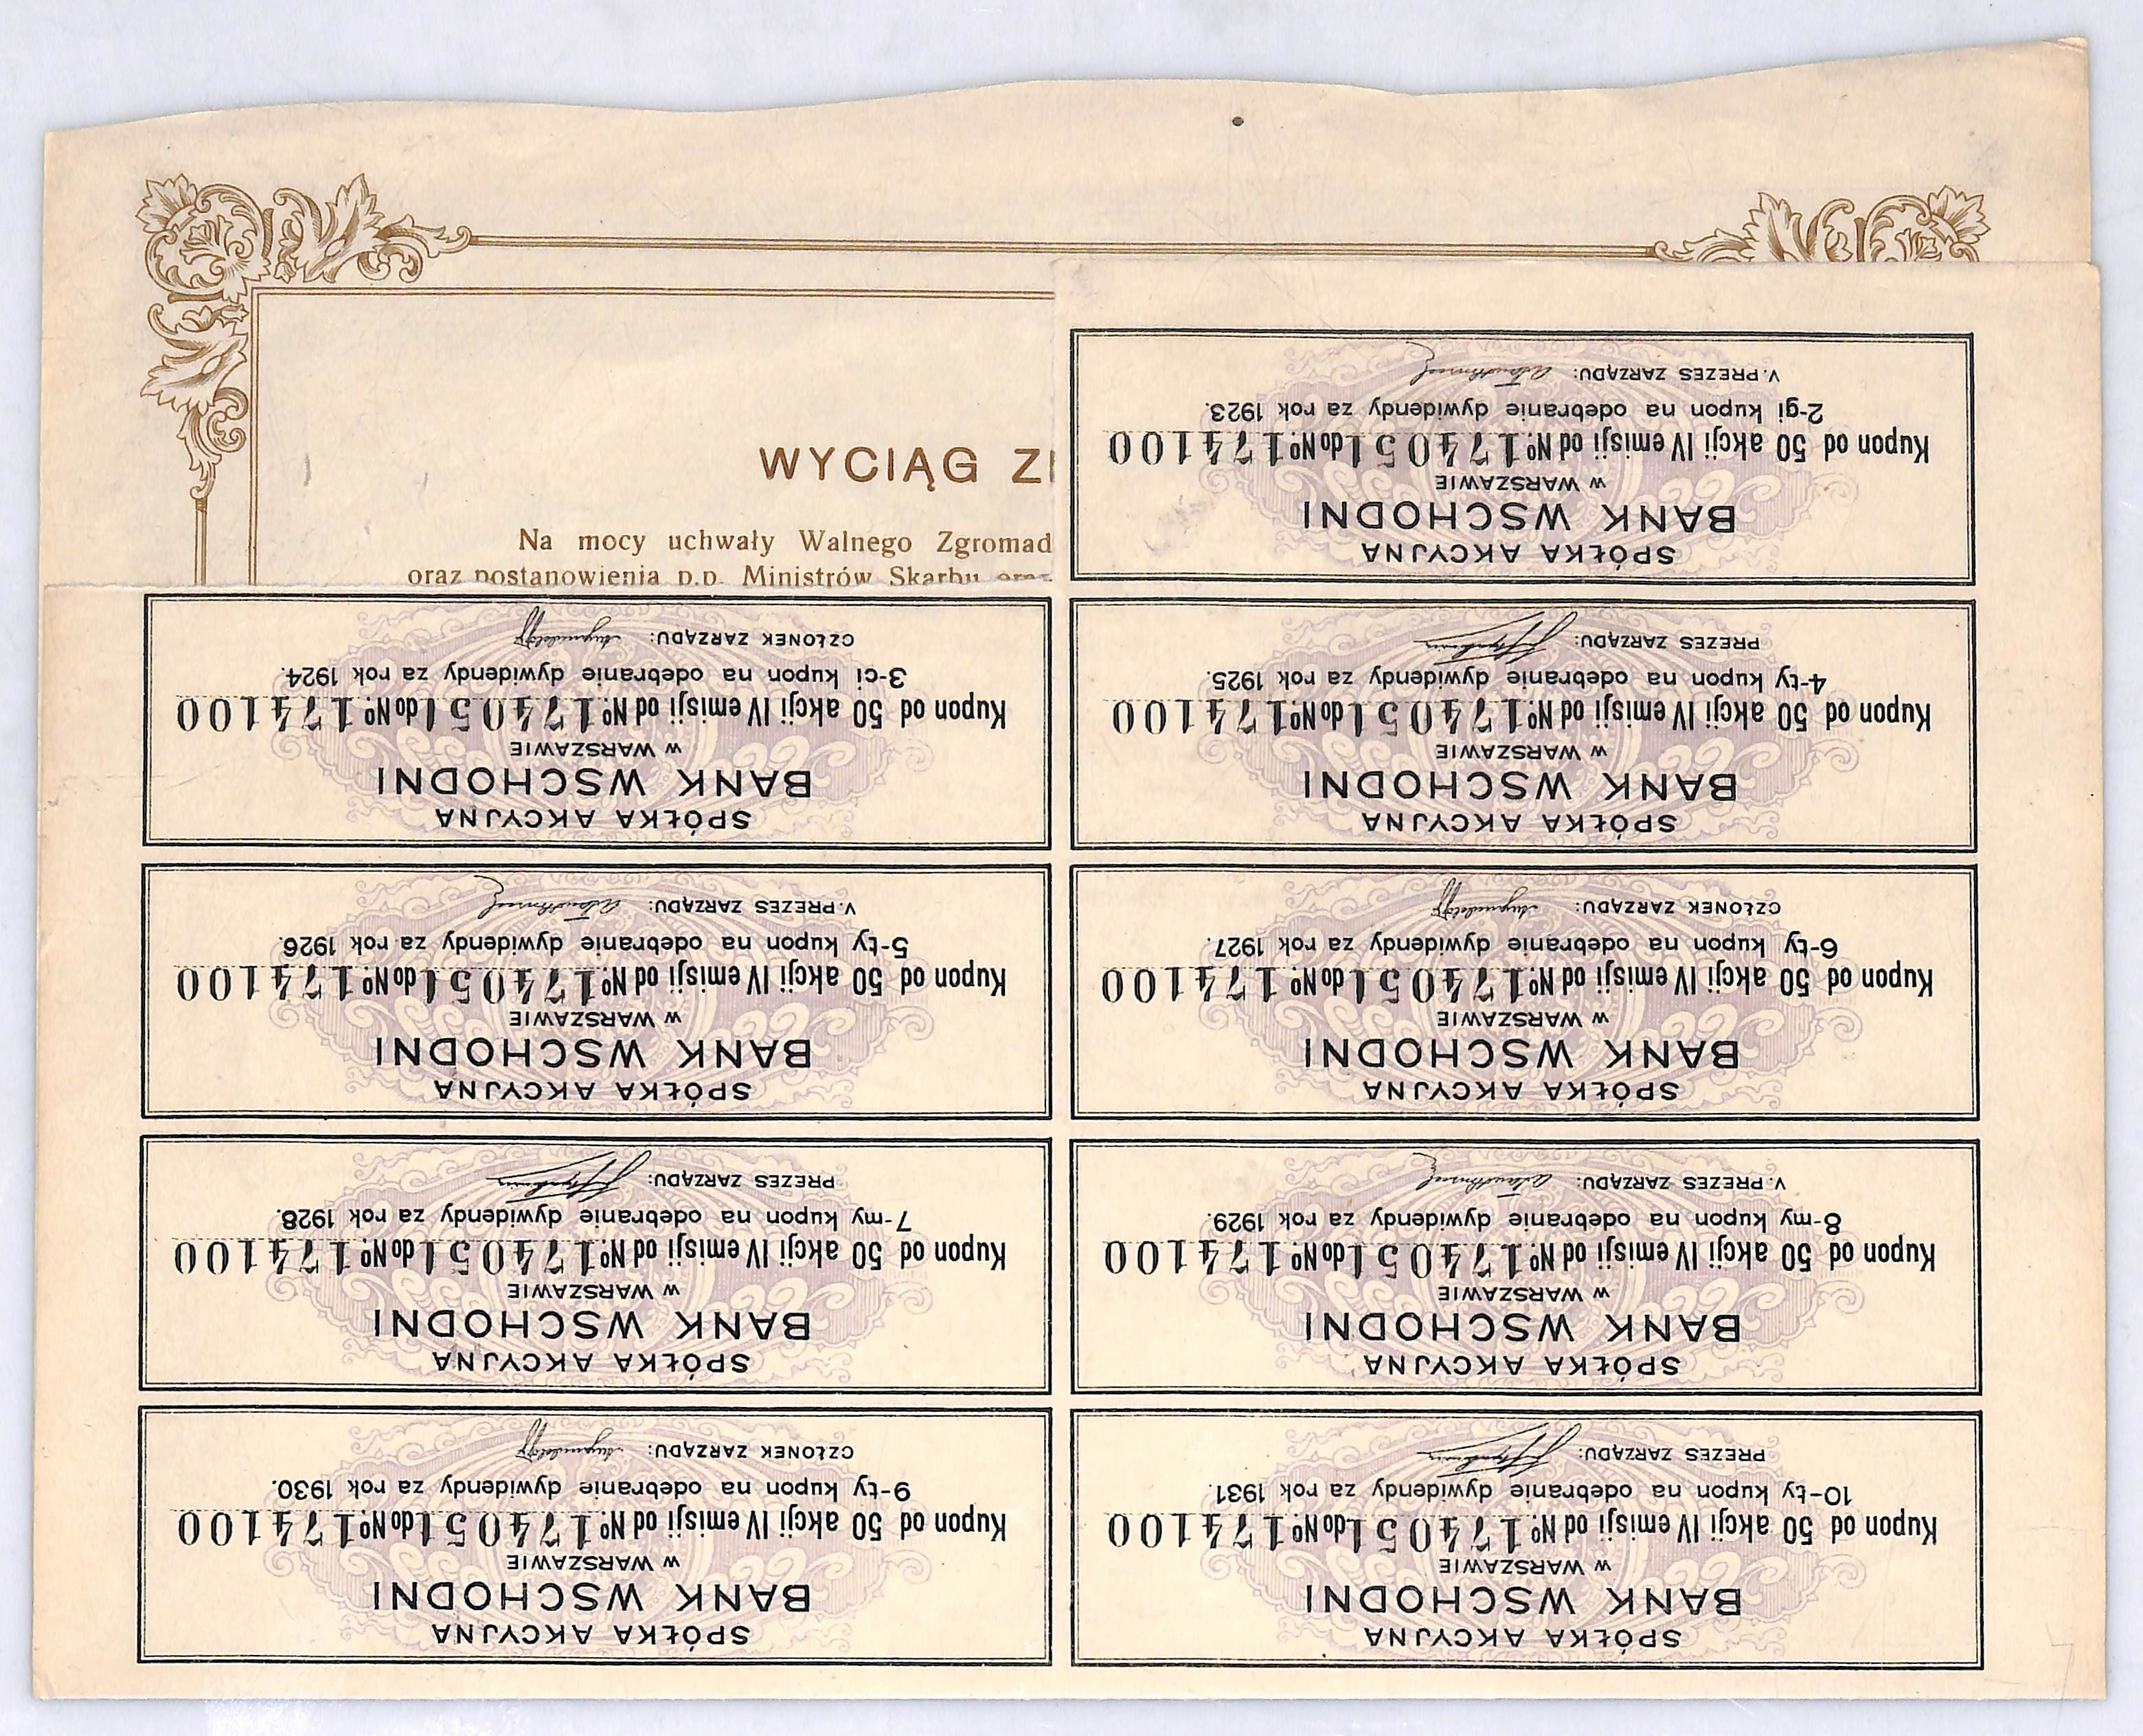 WYCIĄG Z
Na mocy uchwały Walnego Zgromad
oraz postanowienia p.p. Ministrów Skarbu oraz
SPÓŁKA AKCYJNA
BANK WSCHODNI
w WARSZAWIE
Kupon od 50 akcji IV emisji od Nº 174051 do Nº 174100
2-gi kupon na odebranie dywidendy za rok 1923.
V. PREZES ZARZĄDU:
SPÓŁKA AKCYJNA
BANK WSCHODNI
w WARSZAWIE
Kupon od 50 akcji IV emisji od Nº 174051 do Nº 174100
3-ci kupon na odebranie dywidendy za rok 1924.
CZŁONEK ZARZĄDU:
SPÓŁKA AKCYJNA
BANK WSCHODNI
w WARSZAWIE
Kupon od 50 akcji IV emisji od Nº 174051 do Nº 174100
4-ty kupon na odebranie dywidendy za rok 1925.
PREZES ZARZĄDU:
SPÓŁKA AKCYJNA
BANK WSCHODNI
w WARSZAWIE
Kupon od 50 akcji IV emisji od Nº 174051 do Nº 174100
5-ty kupon na odebranie dywidendy za rok 1926.
V. PREZES ZARZĄDU:
SPÓŁKA AKCYJNA
BANK WSCHODNI
w WARSZAWIE
Kupon od 50 akcji IV emisji od Nº 174051 do Nº 174100
6-ty kupon na odebranie dywidendy za rok 1927.
CZŁONEK ZARZĄDU:
SPÓŁKA AKCYJNA
BANK WSCHODNI
w WARSZAWIE
Kupon od 50 akcji IV emisji od Nº 174051 do Nº 174100
7-my kupon na odebranie dywidendy za rok 1928.
PREZES ZARZĄDU:
SPÓŁKA AKCYJNA
BANK WSCHODNI
w WARSZAWIE
Kupon od 50 akcji IV emisji od Nº 174051 do Nº 174100
8-my kupon na odebranie dywidendy za rok 1929.
V. PREZES ZARZĄDU:
SPÓŁKA AKCYJNA
BANK WSCHODNI
w WARSZAWIE
Kupon od 50 akcji IV emisji od Nº 174051 do Nº 174100
9-ty kupon na odebranie dywidendy za rok 1930.
CZŁONEK ZARZĄDU:
SPÓŁKA AKCYJNA
BANK WSCHODNI
w WARSZAWIE
Kupon od 50 akcji IV emisji od Nº 174051 do Nº 174100
10-ty kupon na odebranie dywidendy za rok 1931.
PREZES ZARZĄDU: